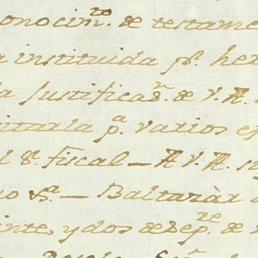 onocim.to de testame
a instituida p.r her
la Justificac.n de V. A.
itirla p.a varios ef
l S.r fiscal — A V. A. su
no S.a — Baltazar
inte, y dos de Sep.re de